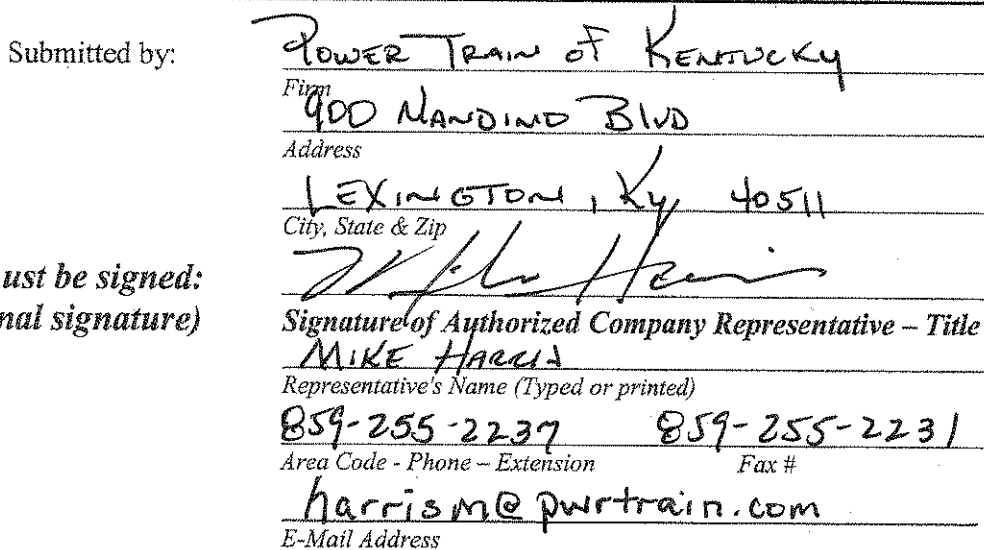 Submitted by: POWER TRAIN OF KENTUCKY
Firm
900 NANDINO BLVD
Address
LEXINGTON, Ky 40511
City, State & Zip
ust be signed: Mike Harris
nal signature) Signature of Authorized Company Representative – Title
MIKE HARRIS
Representative's Name (Typed or printed)
859-255-2237 859-255-2231
Area Code - Phone – Extension Fax #
harrism@pwrtrain.com
E-Mail Address